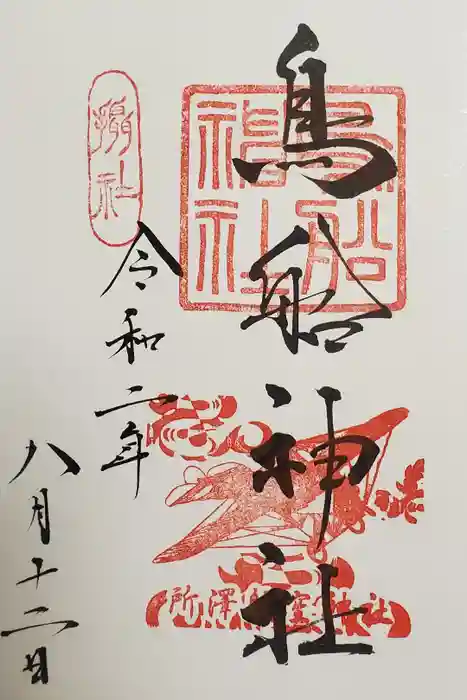 鳥船神社
鳥船神社
攝社
令和二年
八月十二日
所澤航空神社